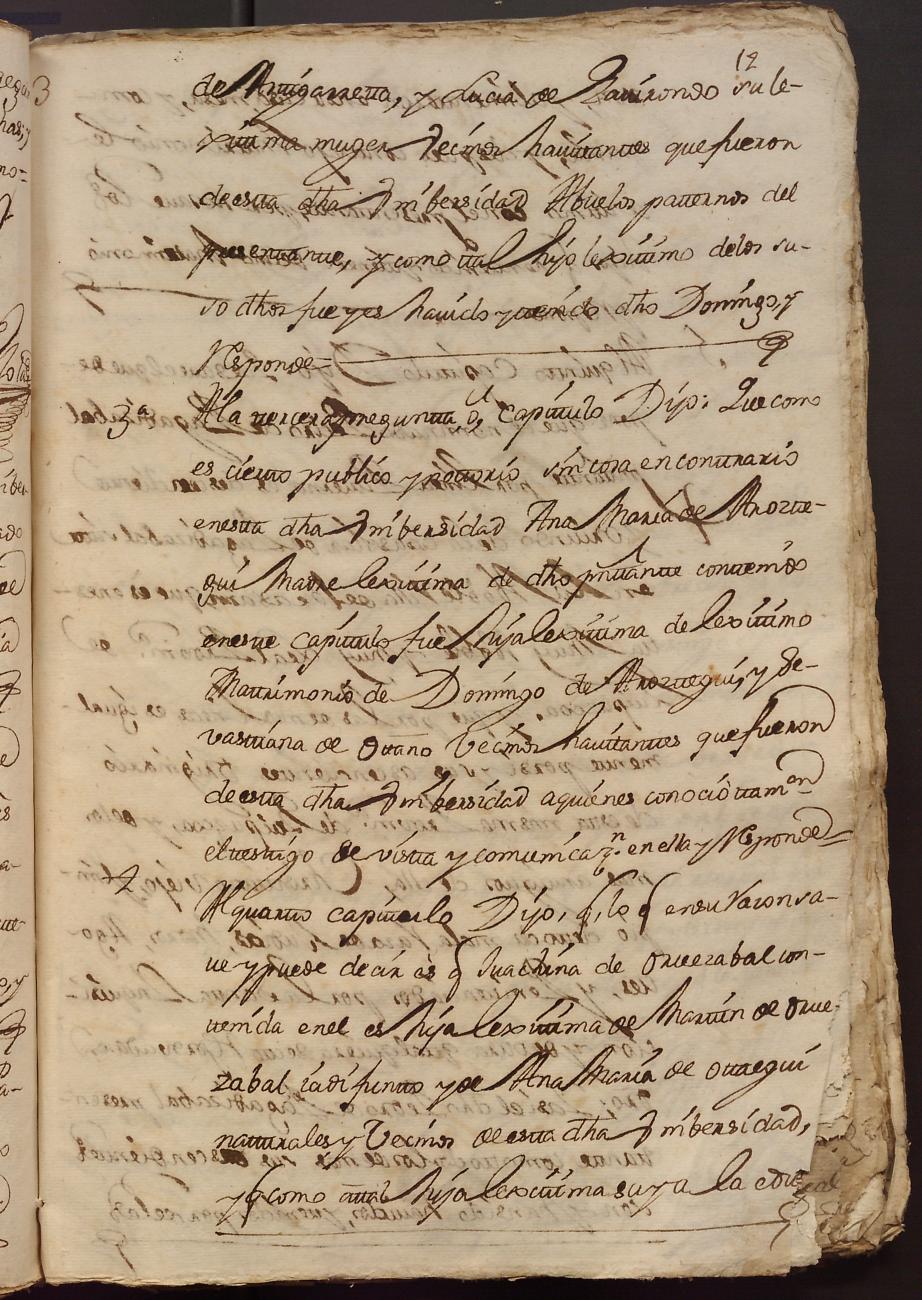 12
de Artigarretta, y Lucia de Zavirondo su le-
xittima muger Vecinos havittantes que fueron
de estta dha Vnibersidad Abuelos patternos del
presenttantte, y como ttal hijo lexittimo de los su-
so dhos fue y es havido y ttenido dho Domingo, y
Responde
3ª A la tercera preguntta ô capittulo Dijo: Que como
es ciertto publico y nottorio sin cosa en conttrario
en estta dha Vnibersidad Ana Maria de Arozte-
gui Madre lexittima de dho presttantte conttenido
en estte capittulo fue hija lexittima de lexittimo
Mattrimonio de Domingo de Arozttegui, y Se-
vasttiana de Ottano Vecinos havittanttes que fueron
de estta dha Vnibersidad a quienes conociò ttamen
el testtigo de vistta y comunicazn. en ella y Responde
4 Al quartto capittulo Dijo, q lo q en su razon sa-
ve y puede decir es q Juachina de Oruezabal con-
ttenida en el es hija lexittima de Marttin de Orue-
zabal ia difuntto y de Ana Maria de Ottegui
natturales y Vecinos de estta dha Vnibersidad,
y q como a ttal hija lexittima suya la